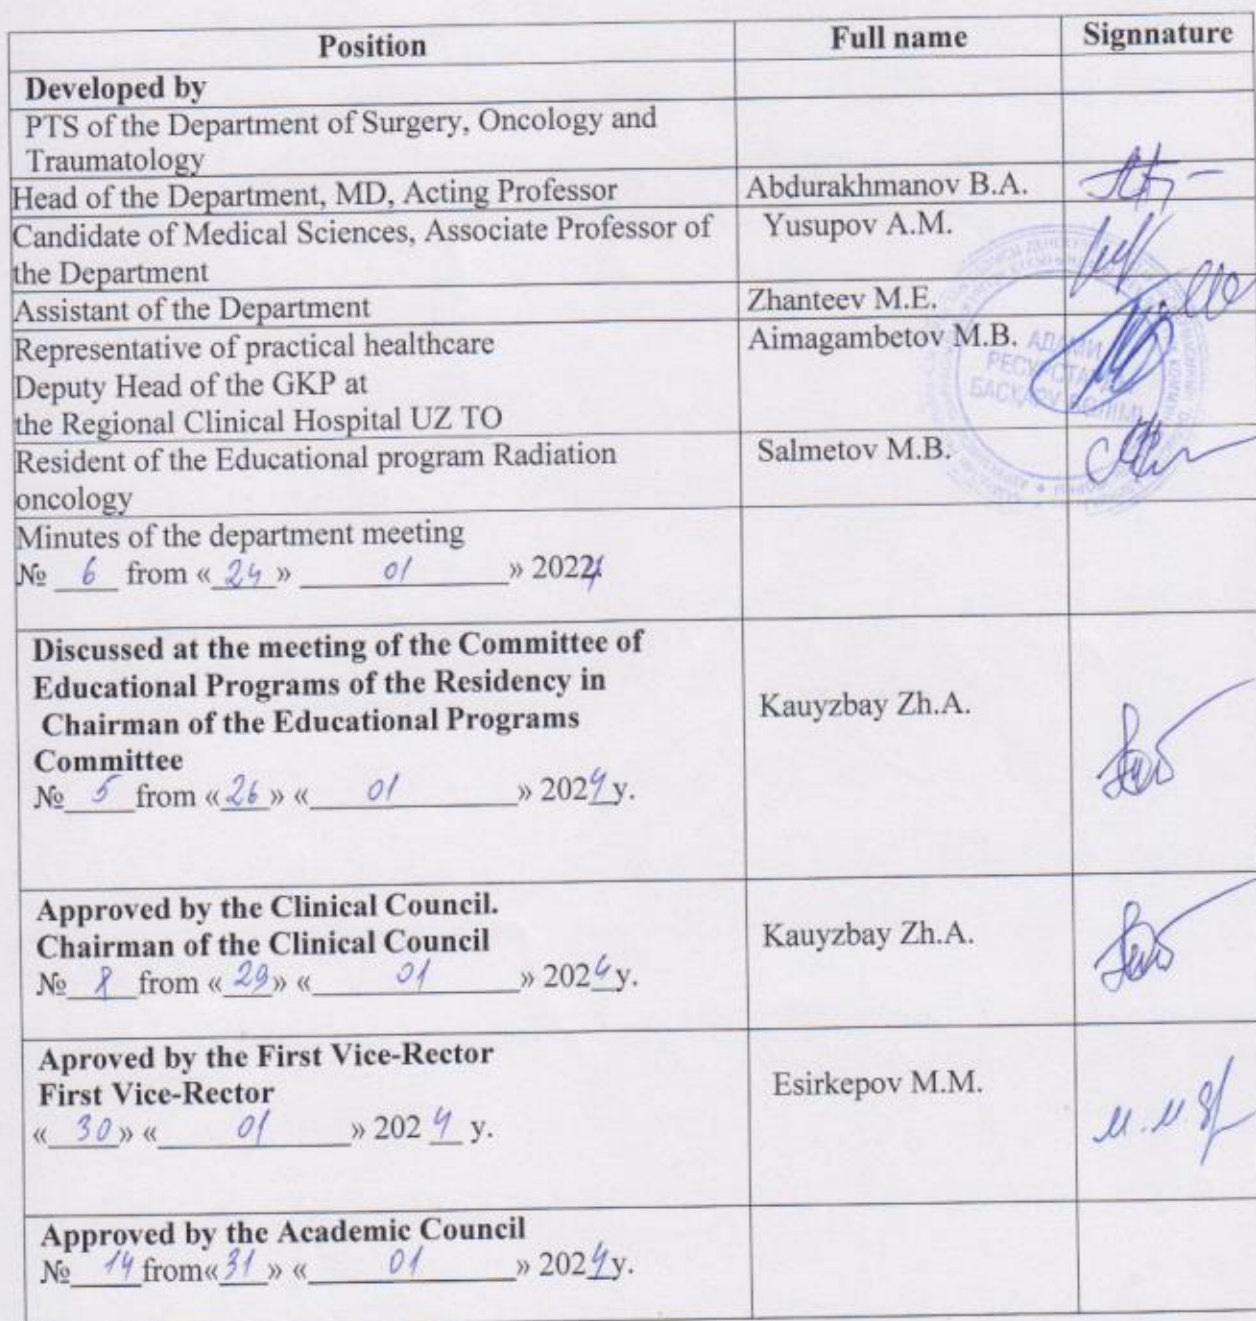 Position Full name Signnature
Developed by
PTS of the Department of Surgery, Oncology and
Traumatology
Head of the Department, MD, Acting Professor Abdurakhmanov B.A.
Candidate of Medical Sciences, Associate Professor of Yusupov A.M.
the Department
Assistant of the Department Zhanteev M.E.
Representative of practical healthcare Aimagambetov M.B.
Deputy Head of the GKP at
the Regional Clinical Hospital UZ TO
АДАМИ
РЕСУРСТАРДЫ
БАСҚАРУ БӨЛІМІ
Resident of the Educational program Radiation Salmetov M.B.
oncology
Minutes of the department meeting
№ 6 from « 24 » 01 » 2024
Discussed at the meeting of the Committee of
Educational Programs of the Residency in
Chairman of the Educational Programs Kauyzbay Zh.A.
Committee
№ 5 from « 26 » « 01 » 2024 y.
Approved by the Clinical Council.
Chairman of the Clinical Council Kauyzbay Zh.A.
№ 8 from « 29 » « 01 » 2024 y.
Aproved by the First Vice-Rector
First Vice-Rector Esirkepov M.M.
« 30 » « 01 » 2024 y.
Approved by the Academic Council
№ 14 from« 31 » « 01 » 2024 y.